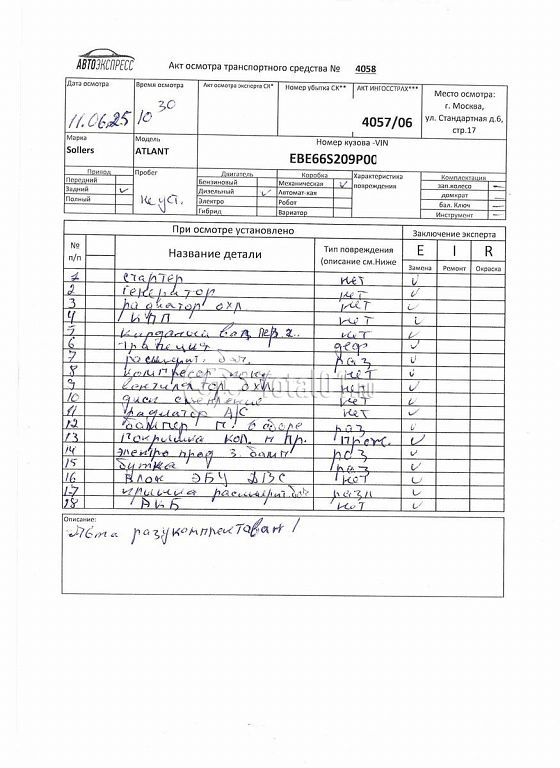 АВТОЭКСПРЕСС
Акт осмотра транспортного средства № 4058
Дата осмотра
11.06.25
Время осмотра
10 30
Акт осмотра эксперта СК*
Номер убытка СК**
АКТ ИНГОССТРАХ***
4057/06
Место осмотра:
г. Москва,
ул. Стандартная д.6,
стр.17
Марка
Sollers
Модель
ATLANT
Номер кузова -VIN
EBE66S209P00
Привод
Передний
Задний ✓
Полный
Пробег
не уст.
Двигатель
Бензиновый
Дизельный ✓
Электро
Гибрид
Коробка
Механическая ✓
Автомат-кая
Робот
Вариатор
Характеристика
повреждения
Комплектация
зап.колесо —
домкрат —
бал. Ключ —
Инструмент —
При осмотре установлено
Заключение эксперта
№ п/п
Название детали
Тип повреждения
(описание см.Ниже
E I R
Замена Ремонт Окраска
1 стартер нет ✓
2 генератор нет ✓
3 радиатор охл. нет ✓
4 КПП нет ✓
5 карданный вал пер. нет ✓
6 трапеция деф ✓
7 расширит. бач. раз ✓
8 компрессор нет ✓
9 вентилятор охл. нет ✓
10 диск сцепления нет ✓
11 радиатор А/С нет ✓
12 бампер п. в сборе раз ✓
13 покрышка кол. п пр. ✓
14 электро пров з. бамп раз ✓
15 раз ✓
16 Блок ЭБУ ДВС нет ✓
17 крышка расширит. бач ✓
18 АКБ нет ✓
Описание:
разукомплектован!